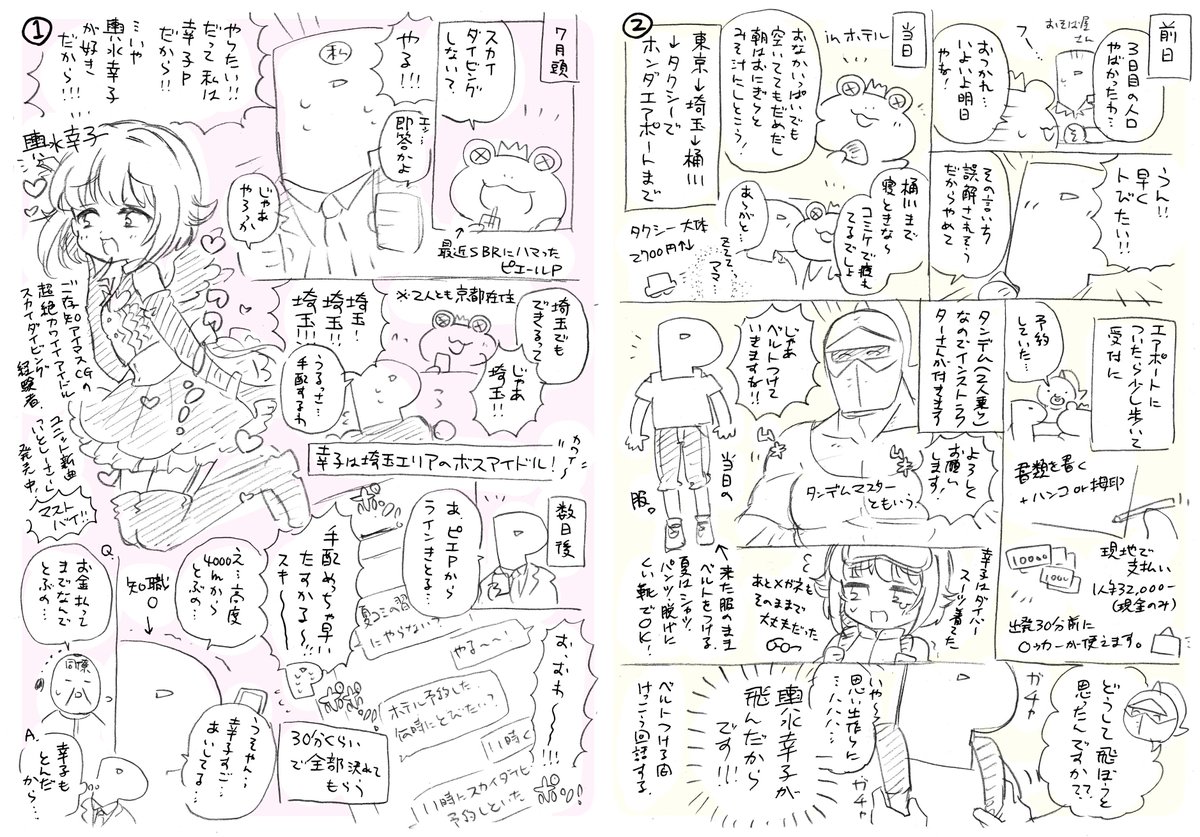 ①
7月頭
スカイ
ダイビング
しないて
やる!!!
私
やりたい!!
だって私は
幸子P
だから!!
…いや
輿水幸子
が好き
だから!!!
エッ…
即答かよ
じゃあ
やろうか
最近SBRにハマった
ピエールP
輿水幸子
ご存知アイマスCGの
超絶カワイイアイドル
スカイダイビング
経験者。
ユニット新曲
発売中!
マスト
バイ!!
※2人とも京都在住
埼玉でも
できるって
じゃあ
埼玉!!
埼玉!
埼玉!!
埼玉!!!
うるっさ…
手配するわ
幸子は埼玉エリアのボスアイドル!
カワイー
数日後
あ、ピエPから
ラインきとる…
手配めっちゃ早い
たすかる〜〜
スキ〜
む…むわ〜
〜〜!!!
にやらない?
やる〜〜!
ホテル予約した
何時にとびたい?
11時く
11時にスカイダイビ
予約しといた
30分くらい
で全部決めて
もらう
え…高度
4000mから
とぶの…
知職
0→
うそやん…
幸子すご…
あいてる…
Q.
お金払って
までなんで
とぶの…
同僚
A.
幸子も
とんだ
から…
②
前日
おそば屋
さん
3日目の人口
やばかったわ…
おつかれ…
いよいよ明日
やな!
うん!!
早く
トびたい!!
その言い方
誤解されそう
だからやめて
当日
inホテル
おなかいっぱいでも
空いててもだめだし
朝はおにぎりと
みそ汁にしとこう!
東京→埼玉→桶川
→タクシーで
ホンダエアポートまで
桶川まで
寝ときなら
コミケで疲れ
てるでしょ
あ〜がと…
ママ…
タクシー大体
2700円↑↓
エアポートに
ついたら少し歩いて
受付に
予約
していた…
書類を書く
+ハンコor拇印
現地で
支払い
1人¥32,000-
(現金のみ)
10000
1000
出発30分前に
ロッカーが使えます。
タンデム(2人乗り)
なのでインストラク
ターさんが付きます
よろしく
お願い
します!
タンデムマスター
ともいう。
じゃあ
ベルトつけて
いきますね!!
当日の
服。
↑来た服のまま
ベルトをつける。
夏はシャツ、
パンツ、脱げに
くい靴でOK!
幸子はダイバー
スーツ着てた
あとメガネも
そのままで
大丈夫だった
どうして飛ぼうと
思ったんですか??
ガチャ
ガチャ
いや〜
思い出作りに
…ハハハ…
輿水幸子が
飛んだから
です!!
ベルトつける間
けっこう会話する。